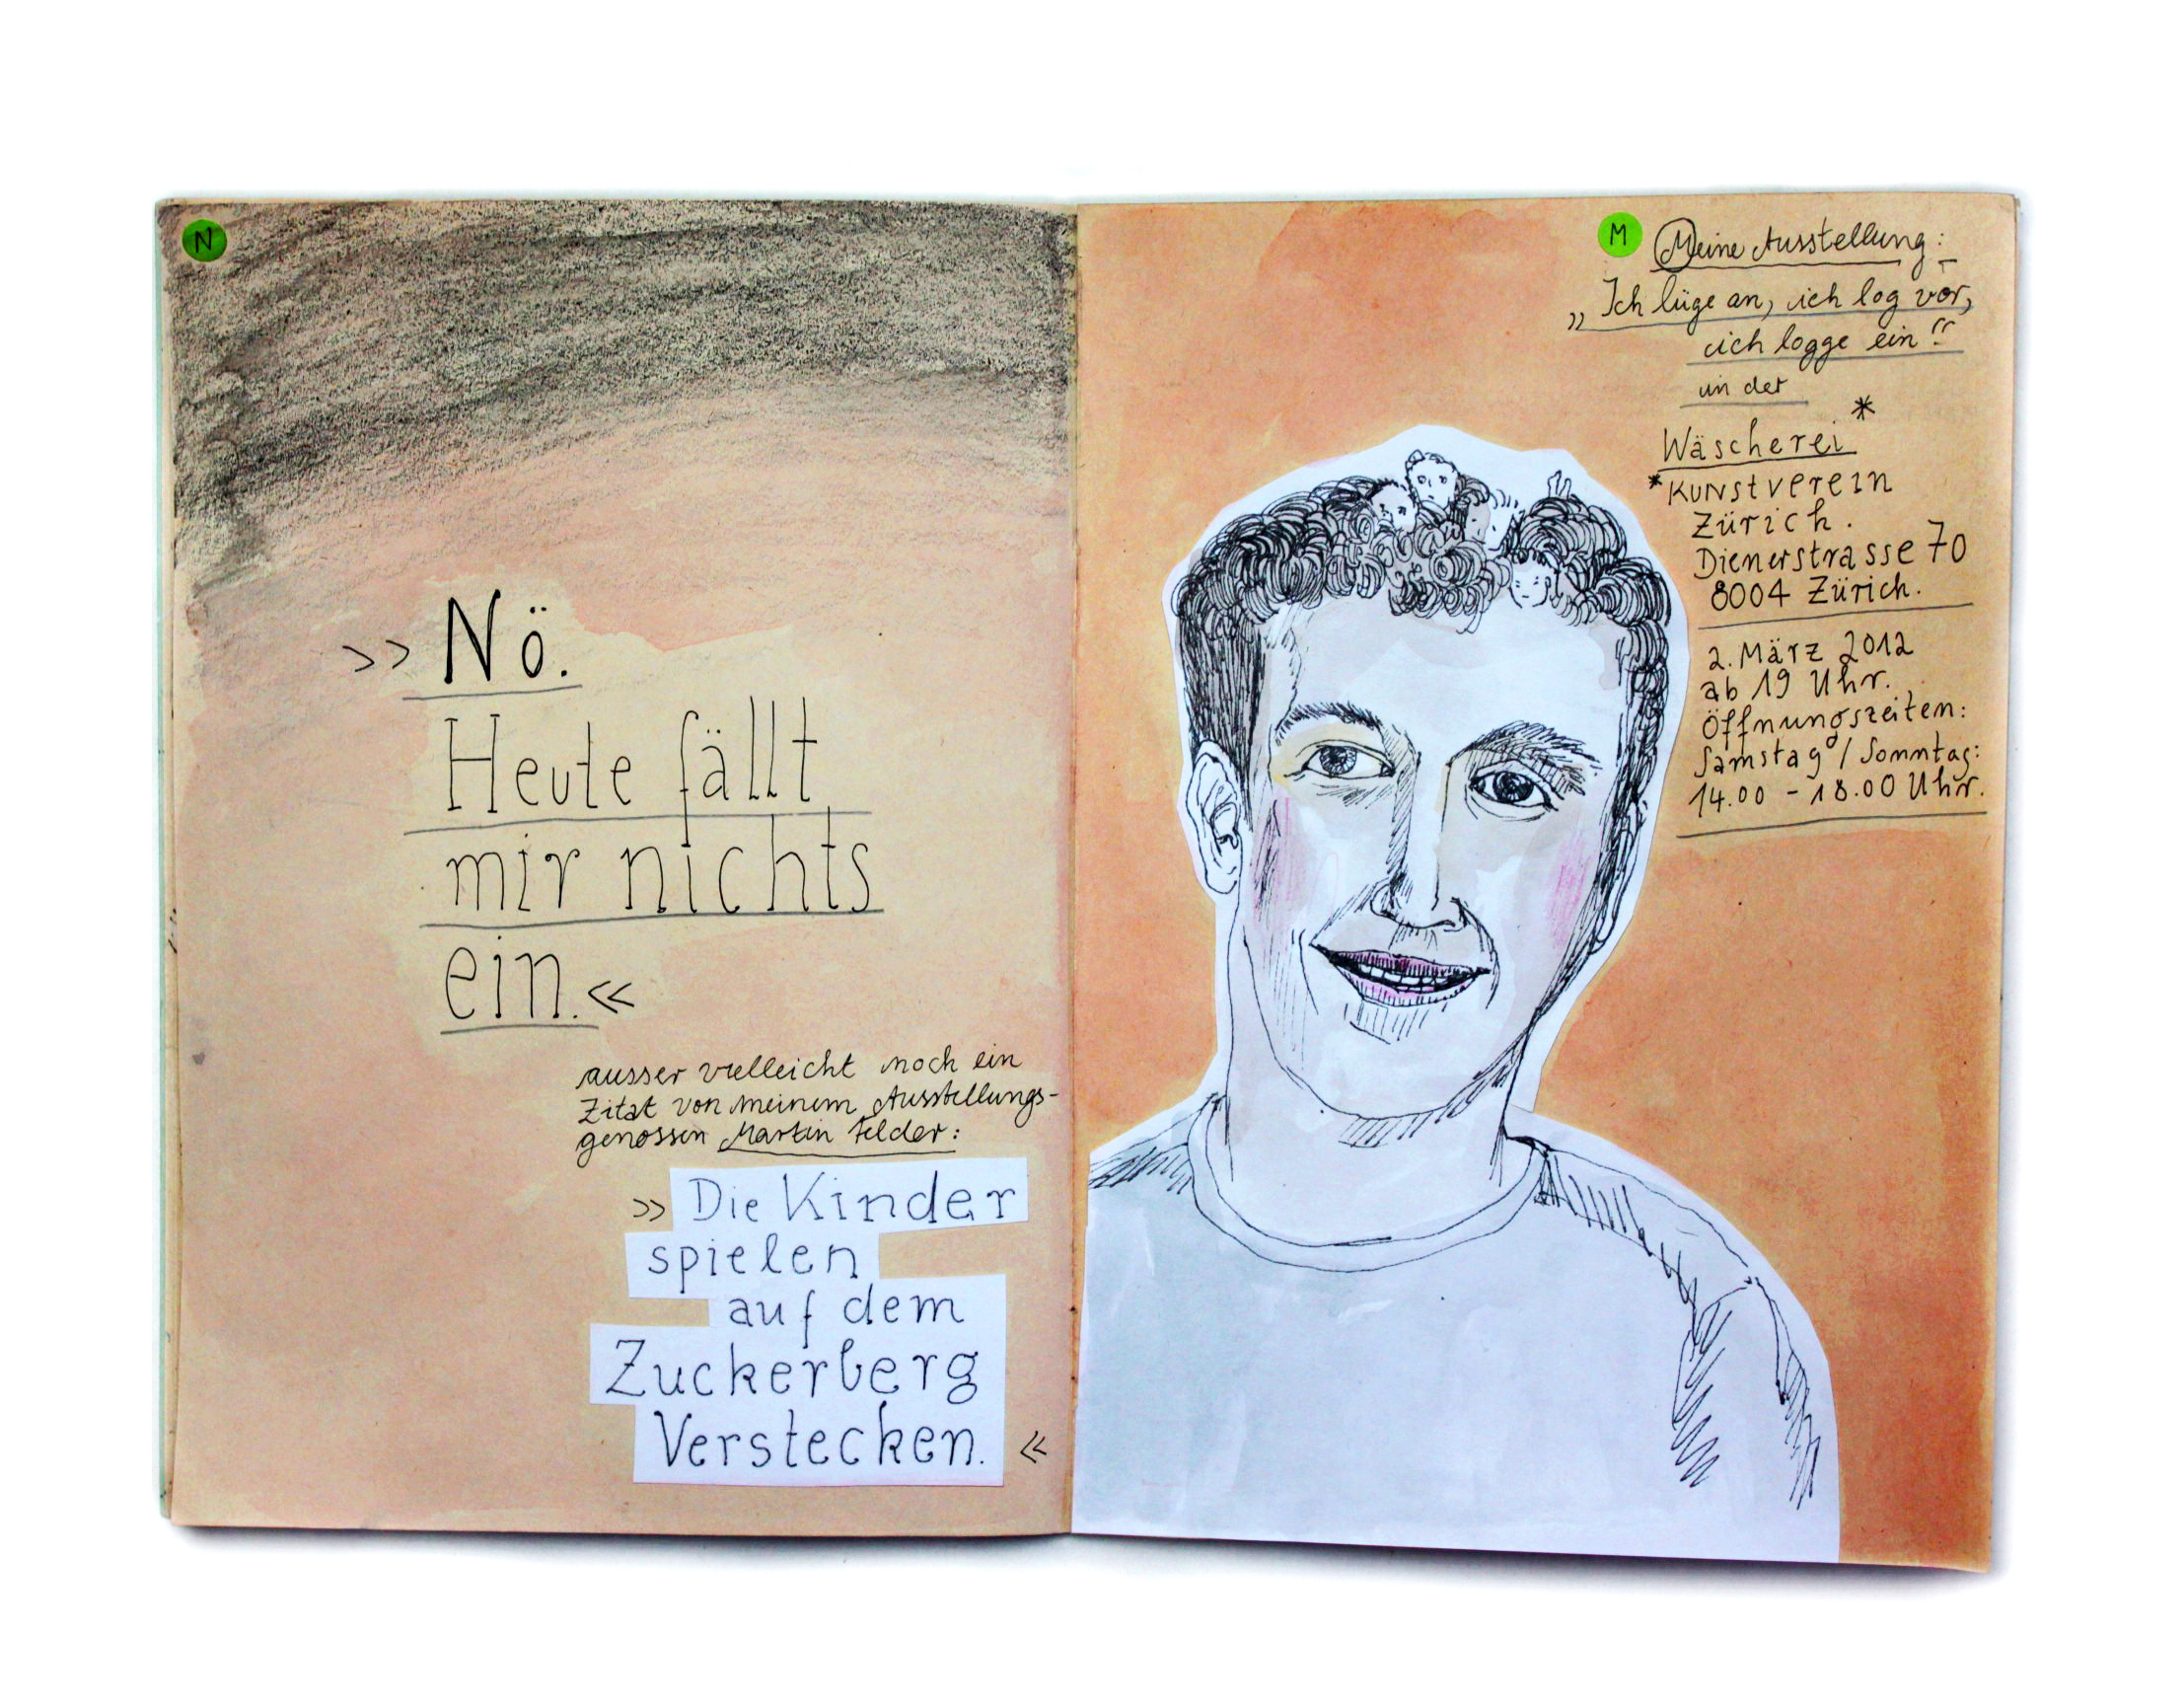 N
>> Nö.
Heute fällt
mir nichts
ein. <<
ausser vielleicht noch ein
Zitat von meinem Ausstellungs-
genossen Martin Felder:
>> Die Kinder
spielen
auf dem
Zuckerberg
Verstecken. <<
M Meine Ausstellung:
„Ich lüge an, ich log vor,
ich logge ein“
in der
Wäscherei *
* Kunstverein
Zürich.
Dienerstrasse 70
8004 Zürich.
2. März 2012
ab 19 Uhr.
Öffnungszeiten:
Samstag / Sonntag:
14.00 - 18.00 Uhr.